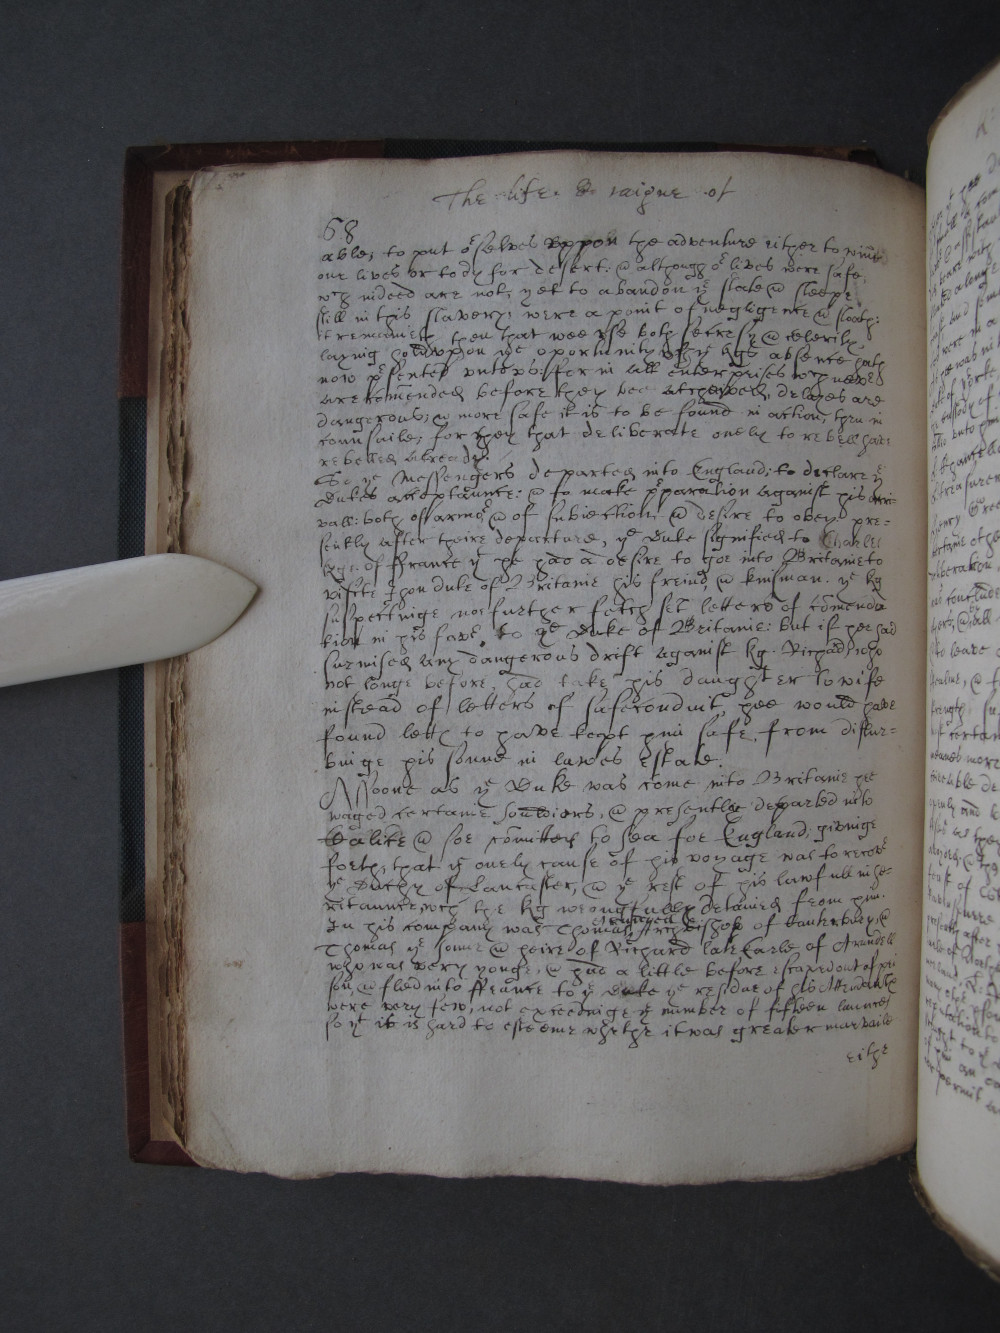 The life & raigne of
68
able, to put or selves vppon the adventure either to winne
our lives or to dy for desert: @ although or lives were safe,
wch indeed are not, yet to abandon ye state @ sleepe
still in this slavery, were a point of negligence @ sloath:
it remaineth then that wee vse both secresy @ celerity,
laying hold vpon ye oportunity wch ye kgs absence hath
now presented vnto vs: for in all enterprises wch never
are comended before they bee atchieved, delayes are
dangerous; @ more safe it is to be found in action, then in
counsaile; for they that deliberate onely to rebell have
rebelled already.
So ye Messengers departed into England; to declare ye
Dukes acceptaunce: @ to make preparation against his arri-
vall: both of armor @ of subiection, @ desire to obey. pre-
sently after theire departure, ye Duke signified to Charles
kge of ffrance yt he had a desire to goe into Britanie to
visite Jhon duke of Britanie his freind @ kinsman. ye kg
suspectinge no further fetch set letters of comenda
tion in his favor to ye Duke of Britanie: but if hee had
surmised any dangerous drift against kg. Richard, who
not longe before, had take his daughter to wife
instead of letters of safe conduit, hee would have
found letts to have kept him safe, from distur-
binge his sonne in lawes estate.
Assoone as ye Duke was come into Britanie hee
waged certaine souldiors, @ presently departed into
Calice @ soe comitted to sea for England; givinge
forth, that ye onely cause of his voyage was to recover
ye Duchy of Lancaster, @ ye rest of his lawfull inhe-
ritaunce, wch the kg wrongfully detained from him.
In his company was Thomas Arundell Archbishop of Canterbury, @
Thomas ye sonne @ heire of Richard late Earle of Arundell
who was very yonge, @ had a little before escaped out of pri
son, @ fled into ffrance to ye Duke ye residue of his Attendants
were very few, not exceedinge ye number of fifteen launces
so yt it is hard to esteeme whether it was greater marvaile
eithe